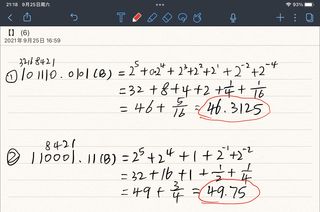 21:18 9月25日周六
93%
【】 (6)
2021年9月25日 16:59
32168421
① 101110.0101(B) = 2⁵+0·2⁴+2³+2²+2¹+2⁻²+2⁻⁴
= 32+8+4+2+1/4+1/16
= 46+5/16 = 46.3125
8421
② 110001.11(B) = 2⁵+2⁴+1+2⁻¹+2⁻²
= 32+16+1+1/2+1/4
= 49+3/4 = 49.75